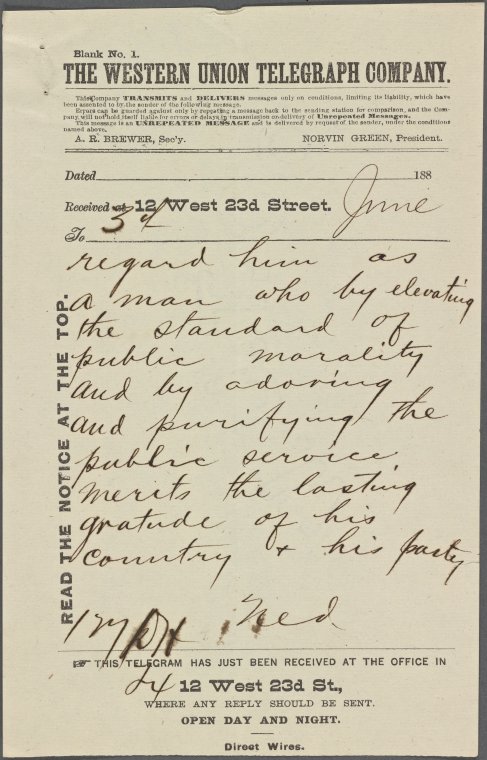 Blank No. 1.
THE WESTERN UNION TELEGRAPH COMPANY.
This Company TRANSMITS and DELIVERS messages only on conditions, limiting its liability, which have
been assented to by the sender of the following message.
Errors can be guarded against only by repeating a message back to the sending station for comparison, and the Com-
pany will not hold itself liable for errors or delays in transmission or delivery of Unrepeated Messages.
This message is an UNREPEATED MESSAGE and is delivered by request of the sender, under the conditions
named above.
A. R. BREWER, Sec'y. NORVIN GREEN, President.
Dated 188
Received at 12 West 23d Street. June
To 3d
regard him as
a man who by elevating
the standard of
public morality
and by adoring
and purifying the
public service
merits the lasting
gratude of his
country & his party
Ned
READ THE NOTICE AT THE TOP.
THIS TELEGRAM HAS JUST BEEN RECEIVED AT THE OFFICE IN
12 West 23d St.,
WHERE ANY REPLY SHOULD BE SENT.
OPEN DAY AND NIGHT.
Direct Wires.